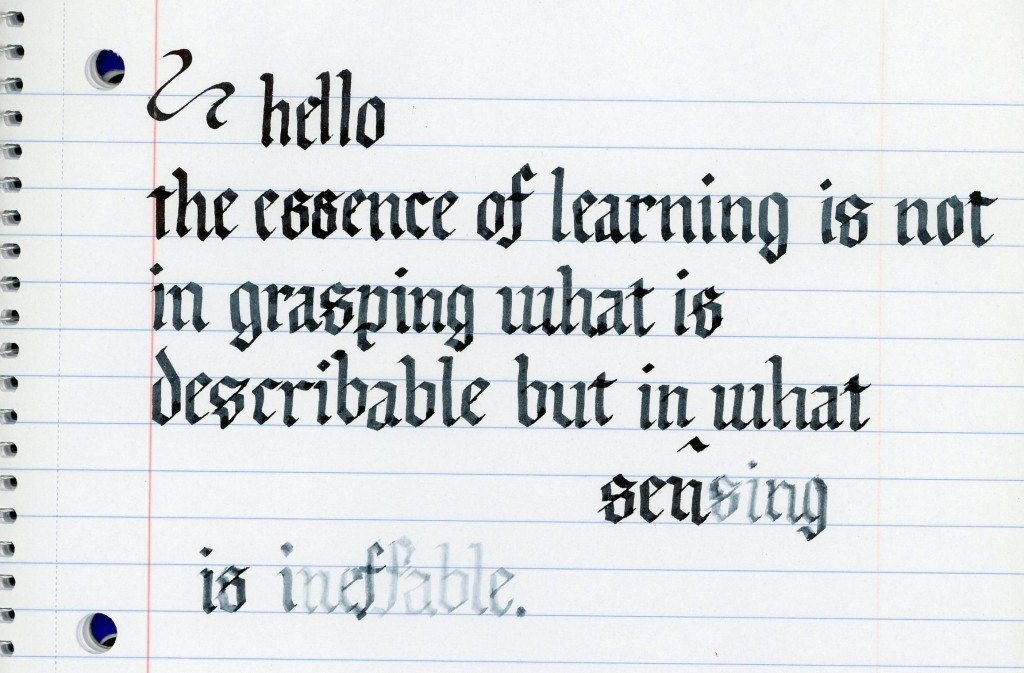 hello
the essence of learning is not
in grasping what is
describable but in what
señsing
is ineffable.